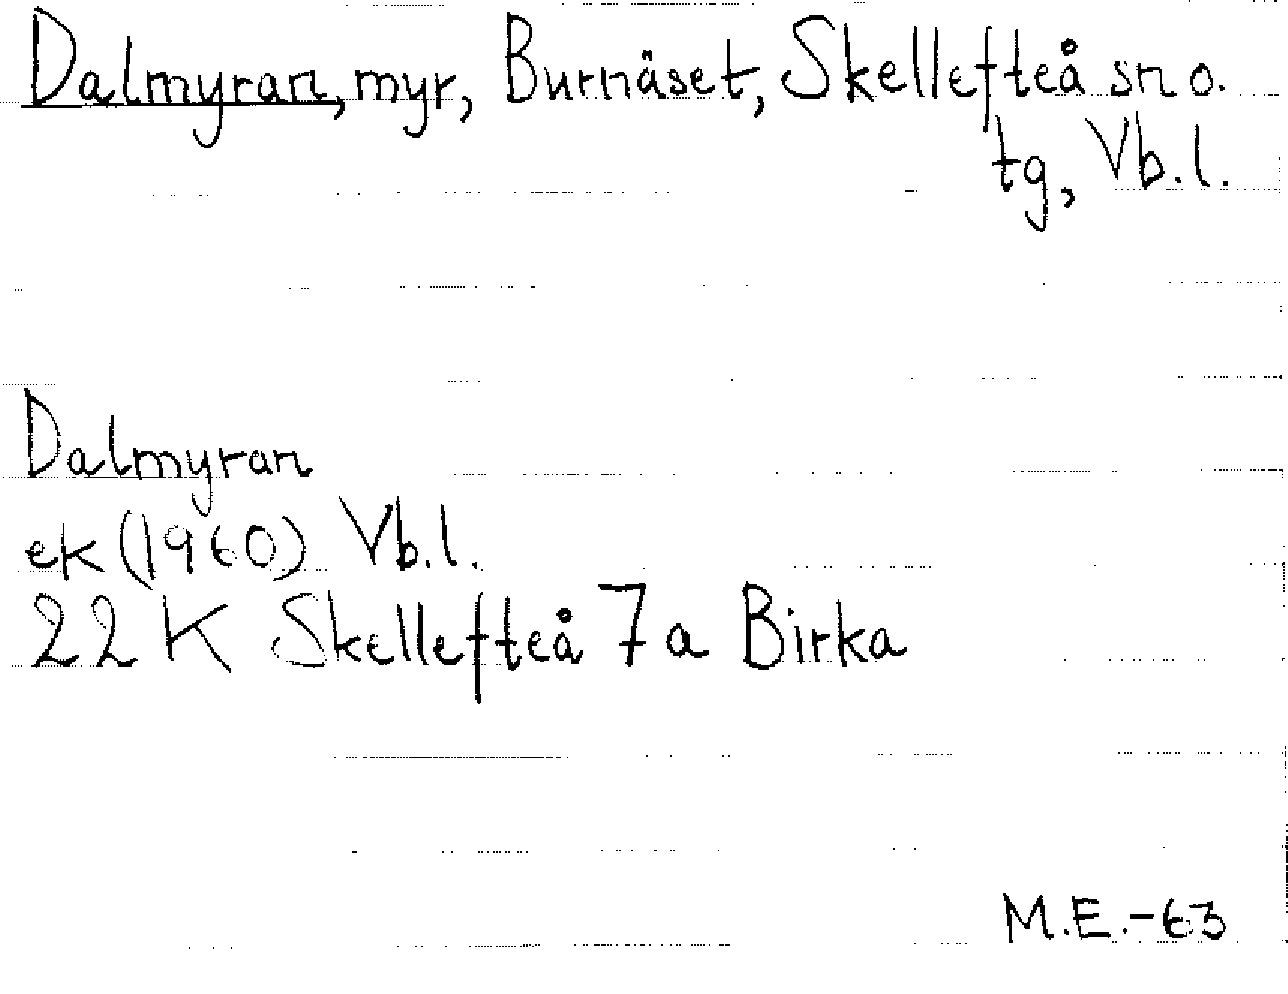 Dalmyran, myr, Burnäset, Skellefteå sn o.
tg, Vb.l.
Dalmyran
ek (1960) Vb.l.
22 K Skellefteå 7 a Birka
M.E.-63